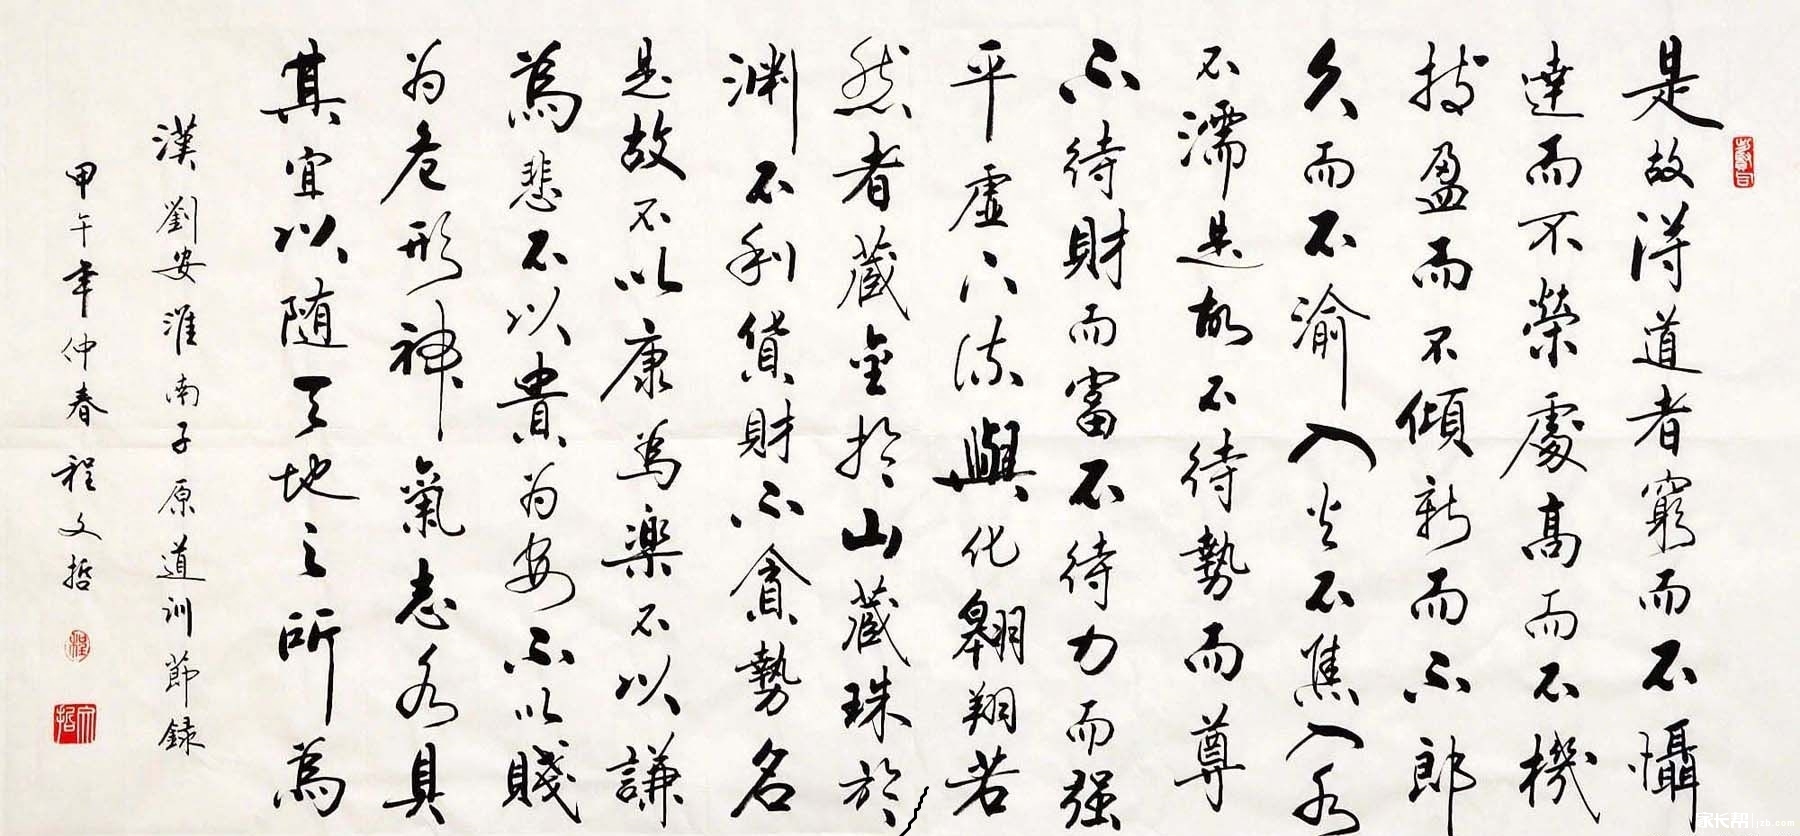 是故得道者窮而不懾
達而不榮處高而不機
持盈而不傾新而不郎
久而不渝入火不焦入水
不濡是故不待勢而尊
不待財而富不待力而强
平虛下流與化翱翔若
然者藏金於山藏珠於
淵不利貨財不貪勢名
是故不以康為樂不以謙
為悲不以貴为安不以賤
为危形神氣志各具
其宜以随天地之所為
漢劉安淮南子原道訓節録
甲午年仲春程文哲
程
文哲
家长帮 jzb.com